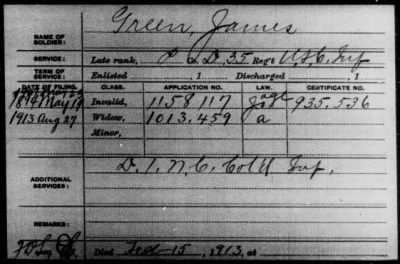 NAME OF SOLDIER: Green, James
SERVICE: Late rank, P Co. D, 35 Reg't U.S.C. Inf
TERM OF SERVICE: Enlisted , 1 Discharged , 1
DATE OF FILING. CLASS. APPLICATION NO. LAW. CERTIFICATE NO.
1894 May Invalid, 1158 117 935.536
1913 Aug 27 Widow, 1013.459 a
Minor,
ADDITIONAL SERVICES: D. 1. N.C. Col'd Inf.
REMARKS:
Died Feb 15, 1913, at